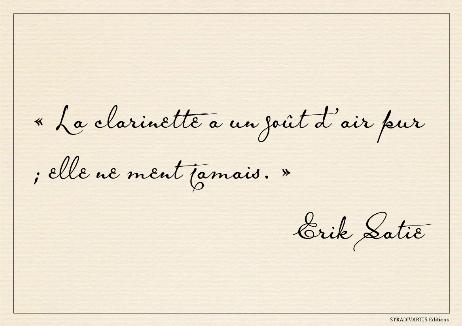 « La clarinette a un goût d'air pur
; elle ne ment jamais. »
Erik Satie
STRADIVARIUS Editions